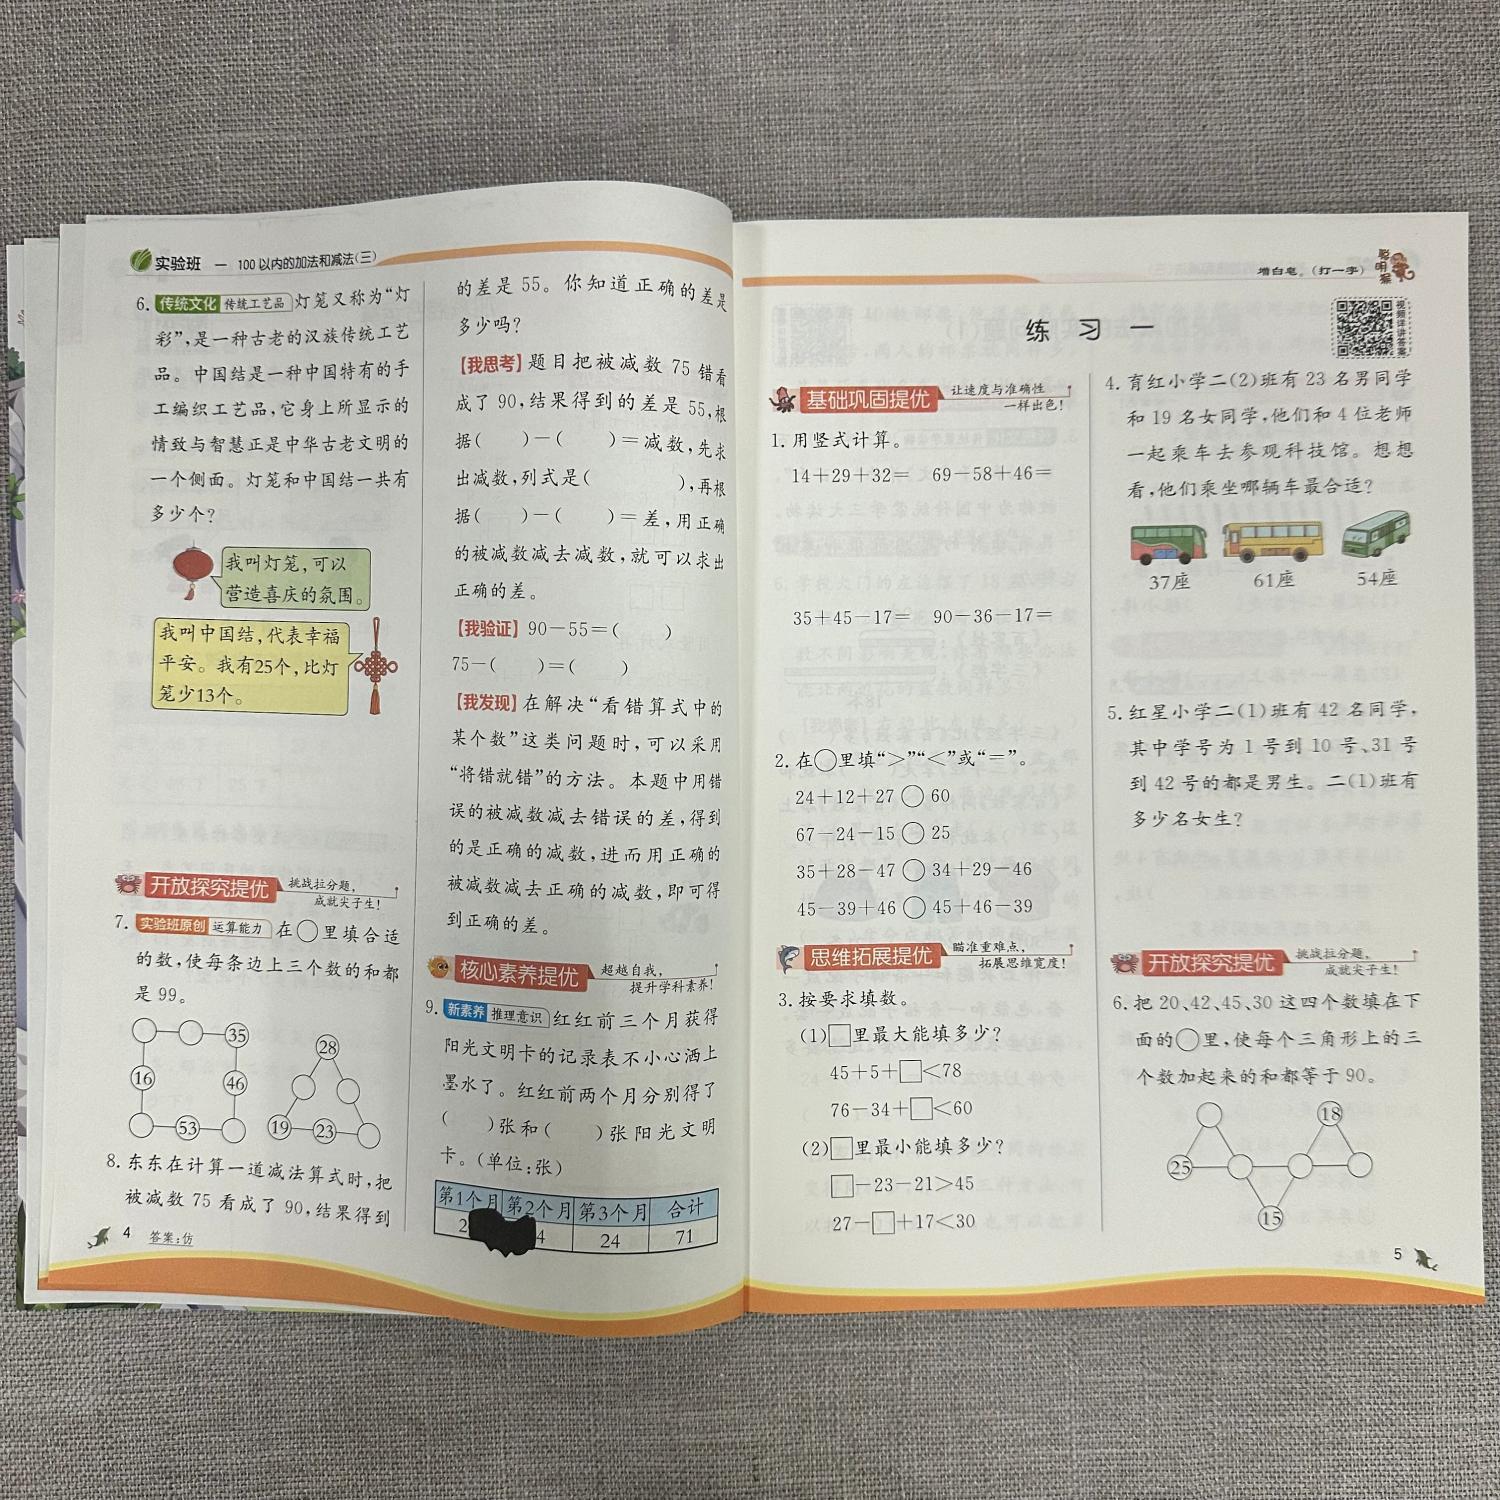 实验班 一 100以内的加法和减法(三)
6. 传统文化 传统工艺品 灯笼又称为“灯
彩”,是一种古老的汉族传统工艺
品。中国结是一种中国特有的手
工编织工艺品,它身上所显示的
情致与智慧正是中华古老文明的
一个侧面。灯笼和中国结一共有
多少个?
我叫灯笼,可以
营造喜庆的氛围。
我叫中国结,代表幸福
平安。我有25个,比灯
笼少13个。
开放探究提优 挑战拉分题,
成就尖子生!
7. 实验班原创 运算能力 在○里填合适
的数,使每条边上三个数的和都
是99。
35
16
46
53
28
19
23
8. 东东在计算一道减法算式时,把
被减数75看成了90,结果得到
4 答案:仿
的差是55。你知道正确的差是
多少吗?
【我思考】题目把被减数75错看
成了90,结果得到的差是55,根
据( )-( )=减数,先求
出减数,列式是( ),再根
据( )-( )=差,用正确
的被减数减去减数,就可以求出
正确的差。
【我验证】90-55=( )
75-( )=( )
【我发现】在解决“看错算式中的
某个数”这类问题时,可以采用
“将错就错”的方法。本题中用错
误的被减数减去错误的差,得到
的是正确的减数,进而用正确的
被减数减去正确的减数,即可得
到正确的差。
核心素养提优 超越自我,
提升学科素养!
9. 新素养 推理意识 红红前三个月获得
阳光文明卡的记录表不小心洒上
墨水了。红红前两个月分别得了
( )张和( )张阳光文明
卡。(单位:张)
第1个月 第2个月 第3个月 合计
2 4 24 71
增白皂。(打一字)
聪明猴
练 习 一
视频详讲答案
基础巩固提优 让速度与准确性
一样出色!
1. 用竖式计算。
14+29+32= 69-58+46=
35+45-17= 90-36-17=
2. 在○里填“>”“<”或“=”。
24+12+27○60
67-24-15○25
35+28-47○34+29-46
45-39+46○45+46-39
思维拓展提优 瞄准重难点,
拓展思维宽度!
3. 按要求填数。
(1)□里最大能填多少?
45+5+□<78
76-34+□<60
(2)□里最小能填多少?
□-23-21>45
27-□+17<30
4. 育红小学二(2)班有23名男同学
和19名女同学,他们和4位老师
一起乘车去参观科技馆。想想
看,他们乘坐哪辆车最合适?
37座 61座 54座
5. 红星小学二(1)班有42名同学,
其中学号为1号到10号、31号
到42号的都是男生。二(1)班有
多少名女生?
开放探究提优 挑战拉分题,
成就尖子生!
6. 把20、42、45、30这四个数填在下
面的○里,使每个三角形上的三
个数加起来的和都等于90。
18
25
15
5